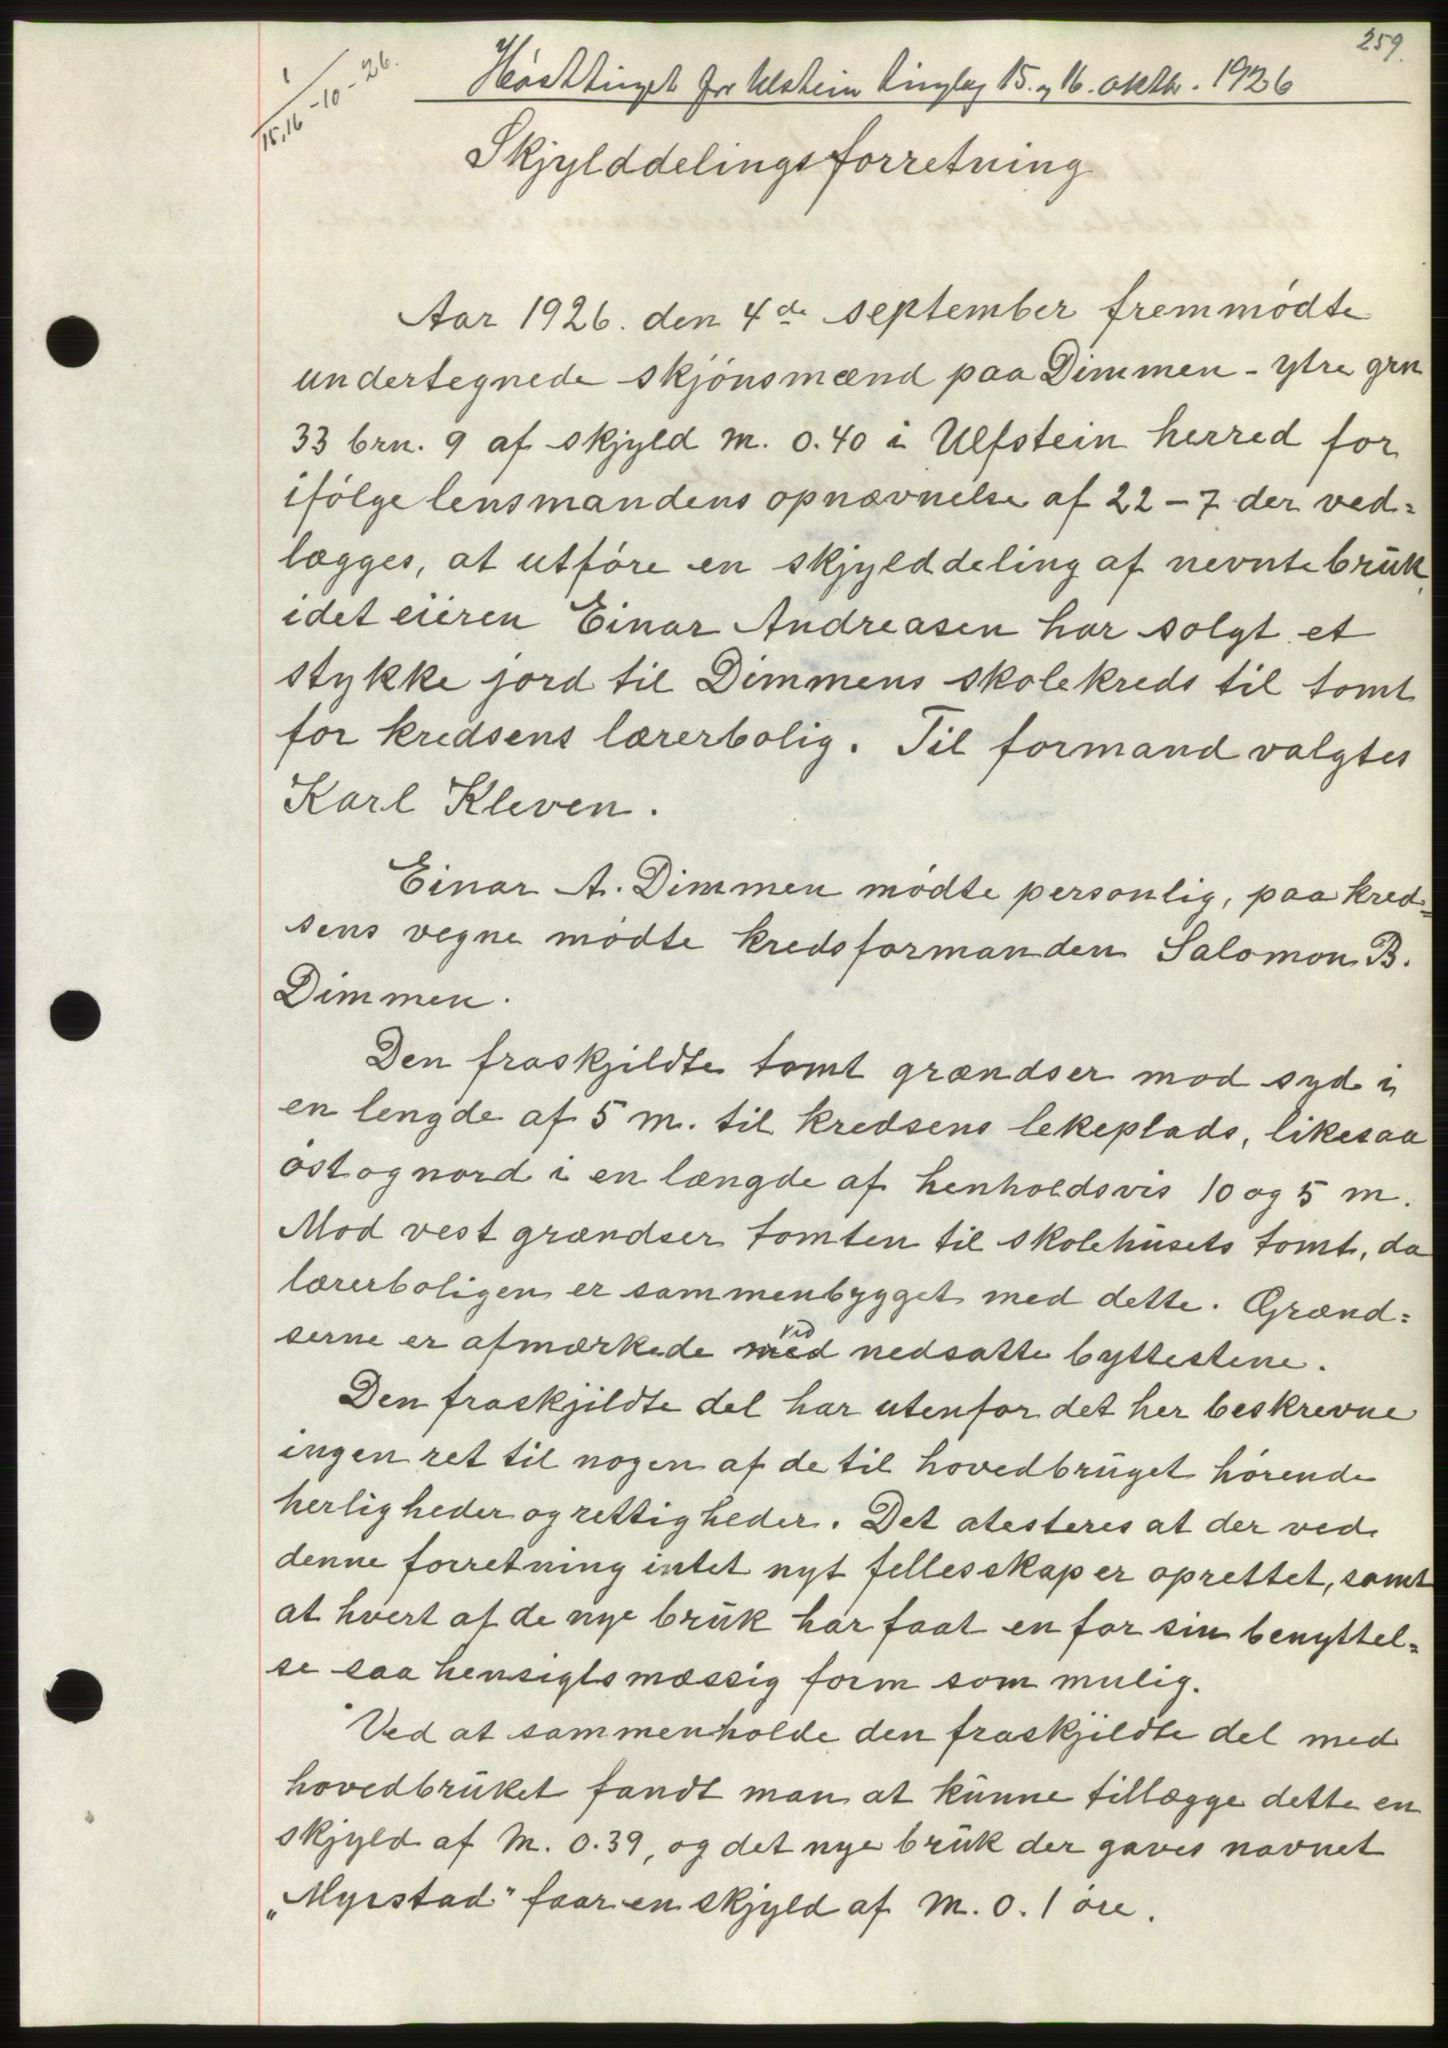 259.
1
15,16-10-26.
Hösttinget for Ulstein tinglag 15. og 16. oktbr. 1926
Skjylddelingsforretning
Aar 1926. den 4de september fremmödte
undertegnede skjönsmænd paa Dimmen - ytre grn
33 brn. 9 af skjyld m. 0.40 i Ulfstein herred for
ifölge lensmandens opnævnelse af 22-7 der ved=
lægges, at utföre en skjylddeling af nevnte bruk,
idet eieren Einar Andreasen har solgt et
stykke jord til Dimmens skolekreds til tomt
for kredsens lærerbolig. Til formand valgtes
Karl Kleven.
Einar A. Dimmen mödte personlig, paa kred=
sens vegne mödte kredsformanden Salomon B.
Dimmen.
Den fraskjildte tomt grændser mod syd i
en lengde af 5 m. til kredsens lekeplads, likesaa
öst og nord i en længde af henholdsvis 10 og 5 m.
Mod vest grændser tomten til skolehusets tomt, da
lærerboligen er sammenbygget med dette. Grænd=
serne er afmærkede med ved nedsatte byttestene.
Den fraskjildte del har utenfor det her beskrevne
ingen ret til nogen af de til hovedbruget hörende
herligheder og rettigheder. Det atesteres at der ved
denne forretning intet nyt fellesskap er oprettet, samt
at hvert af de nye bruk har faat en for sin benyttel=
se saa hensigtsmæssig form som mulig.
Ved at sammenholde den fraskjildte del med
hovedbruket fandt man at kunne tillægge dette en
skjyld af M. 0.39, og det nye bruk der gaves navnet
„Myrstad" faar en skjyld af M. 0.1 öre.